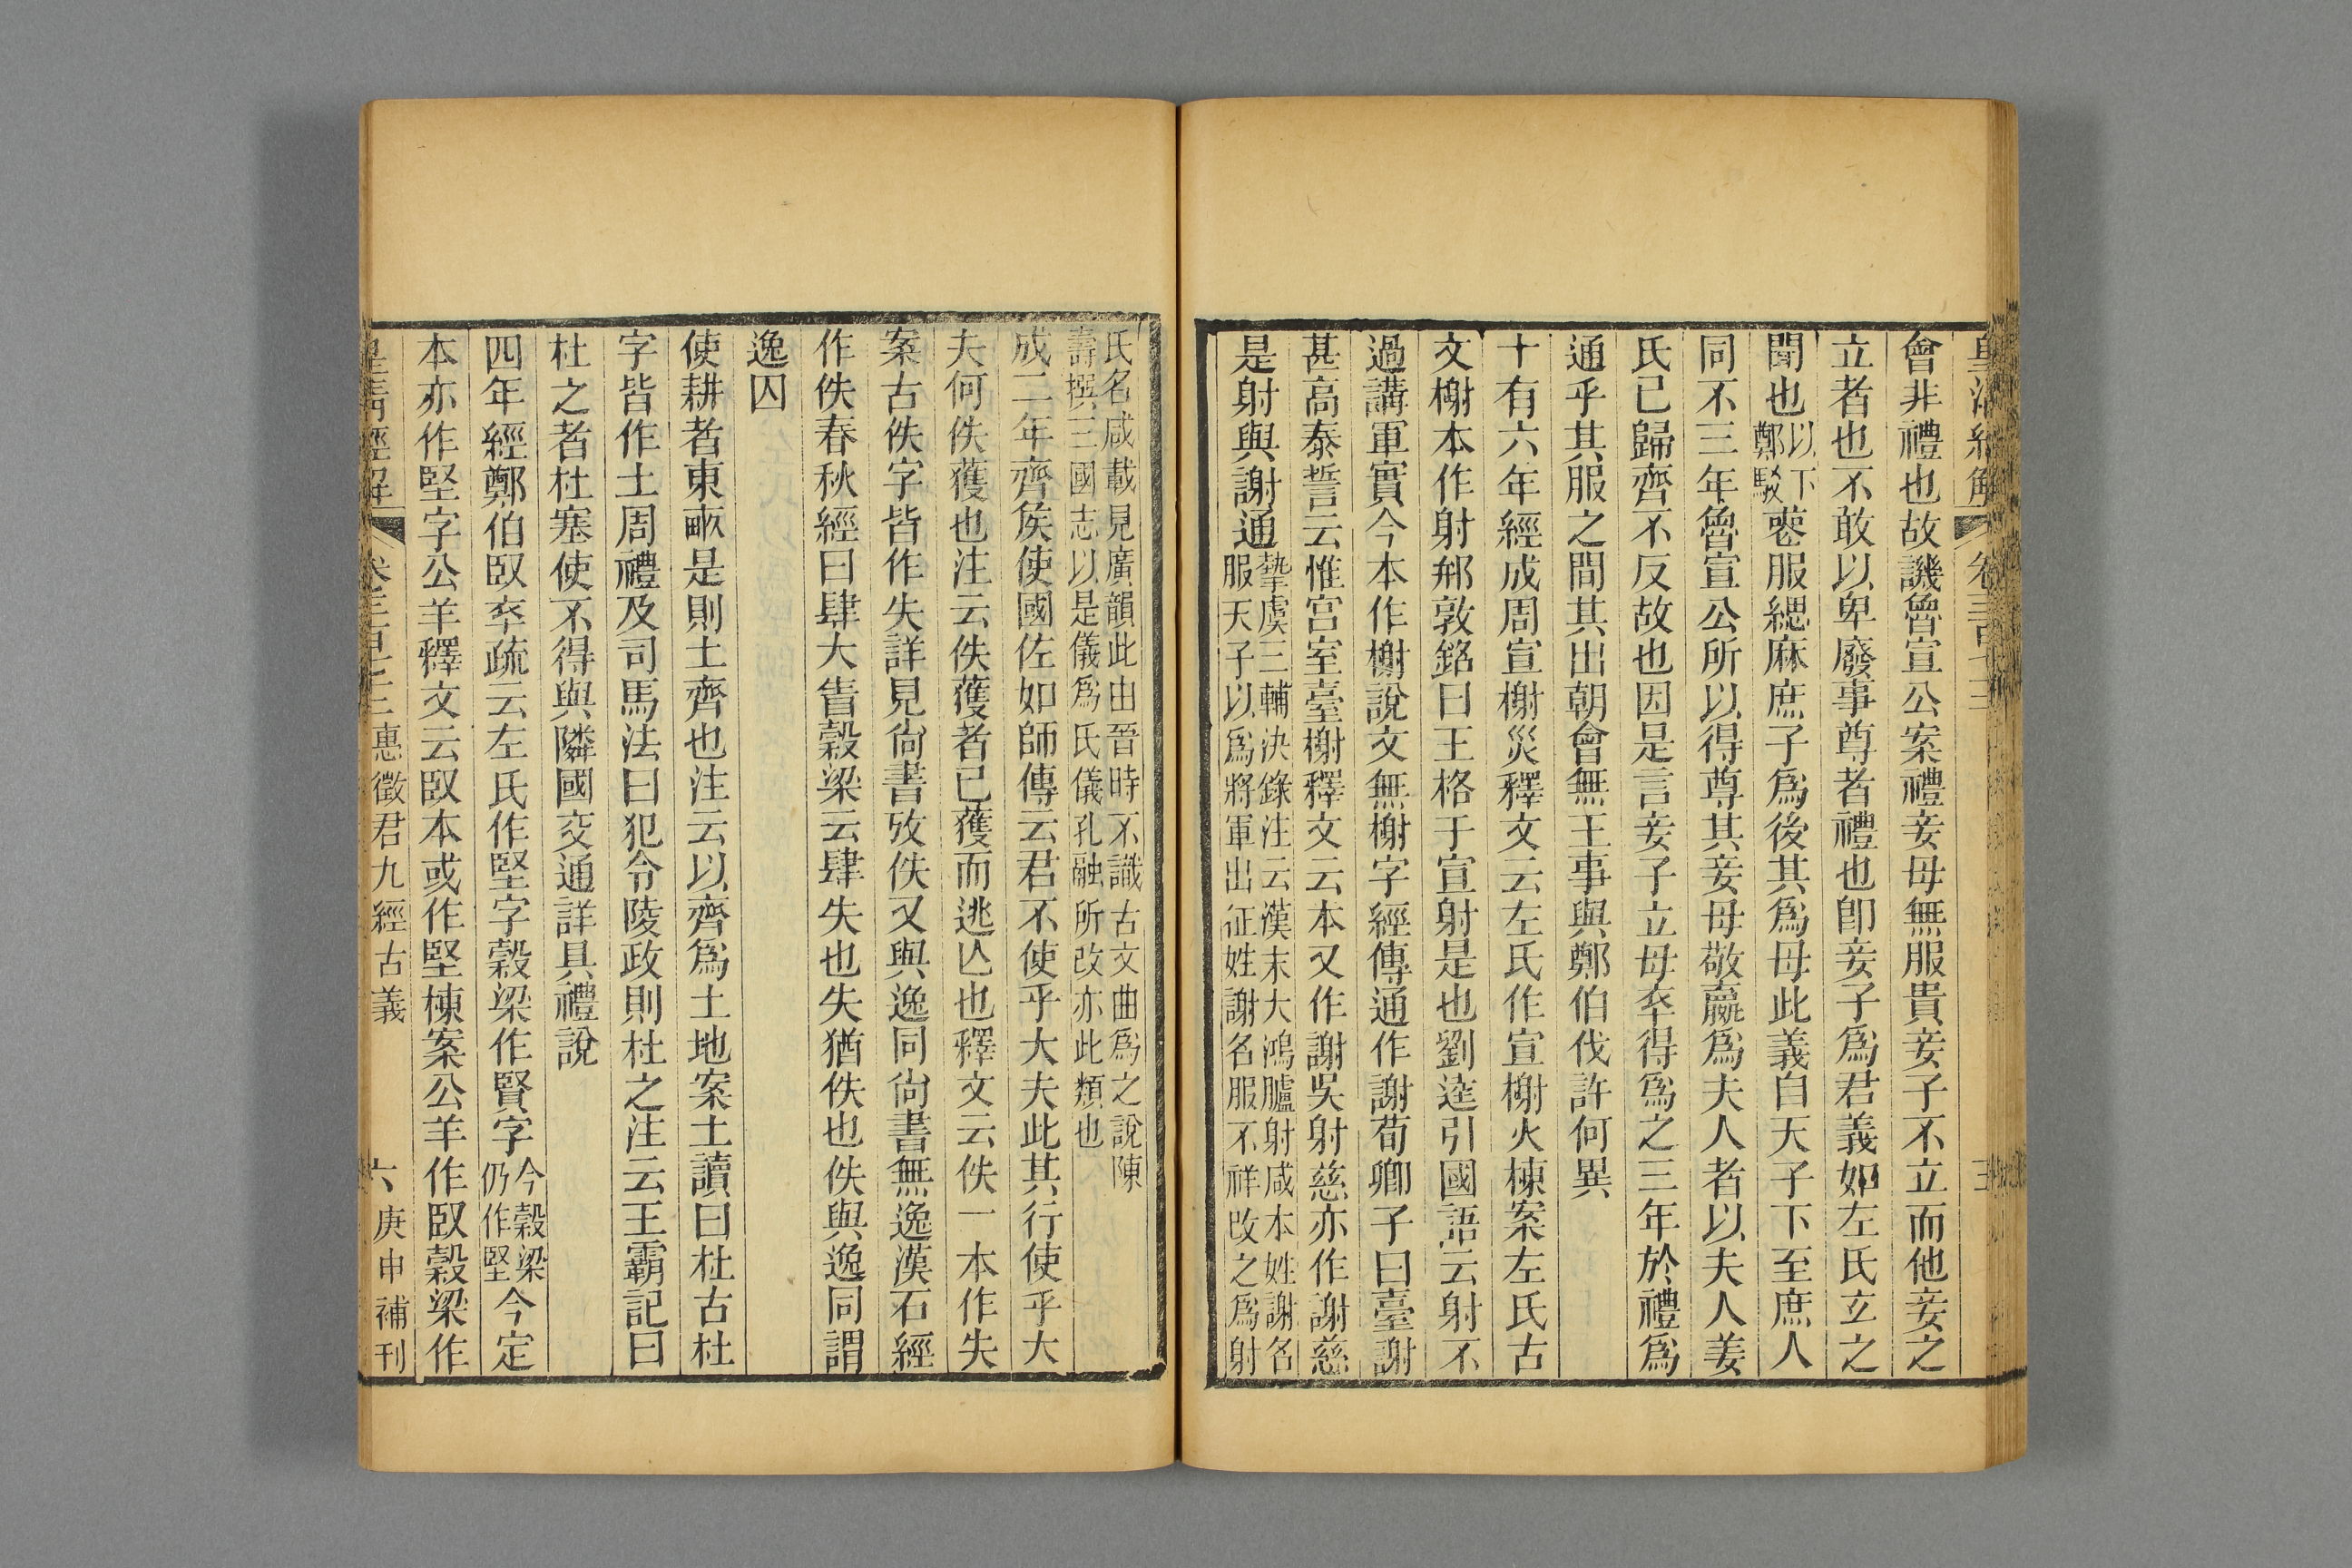 會非禮也故譏魯宣公案禮妾母無服貴妾子不立而他妾之
立者也不敢以卑廢事尊者禮也卽妾子爲君義如左氏立之
聞也以下鄭駁䓤服緦麻庶子爲後其爲母此義自天子下至庶人
同不三年魯宣公所以得尊其妾母敬嬴爲夫人者以夫人姜
氏已歸齊不反故也因是言妾子立母卒得爲之三年於禮爲
通乎其服之間其出朝會無王事與鄭伯伐許何異
十有六年經成周宣榭災釋文云左氏作宣榭火棟案左氏古
文榭本作射𨛬敦銘曰王格于宣射是也劉逵引國語云射不
過講軍實今本作榭說文無榭字經傳通作謝荀卿子曰臺謝
甚高泰誓云惟宫室臺榭釋文云本又作謝吳射慈亦作謝慈
是射與謝通摯虞三輔決錄注云漢末大鴻臚射咸本姓謝名
服天子以爲將軍出征姓謝名服不祥改之爲射
氏名咸載見廣韻此由晉時不識古文曲爲之說陳
壽撰三國志以是儀爲氏儀孔融所改亦此類也
成二年齊侯使國佐如師傳云君不使乎大夫此其行使乎大
夫何佚獲也注云佚獲者已獲而逃亾也釋文云佚一本作失
案古佚字皆作失詳見尙書攷佚又與逸同尙書無逸漢石經
作佚春秋經曰肆大眚穀梁云肆失也失猶佚也佚與逸同謂
逸囚
使耕者東畝是則土齊也注云以齊爲土地案土讀曰杜古杜
字皆作土周禮及司馬法曰犯令陵政則杜之注云王霸記曰
杜之者杜塞使不得與隣國交通詳具禮說
四年經鄭伯臤卒疏云左氏作堅字穀梁作賢字今穀梁仍作堅今定
本亦作堅字公羊釋文云臤本或作堅棟案公羊作臤穀梁作
惠徵君九經古義 六 庚申補刊